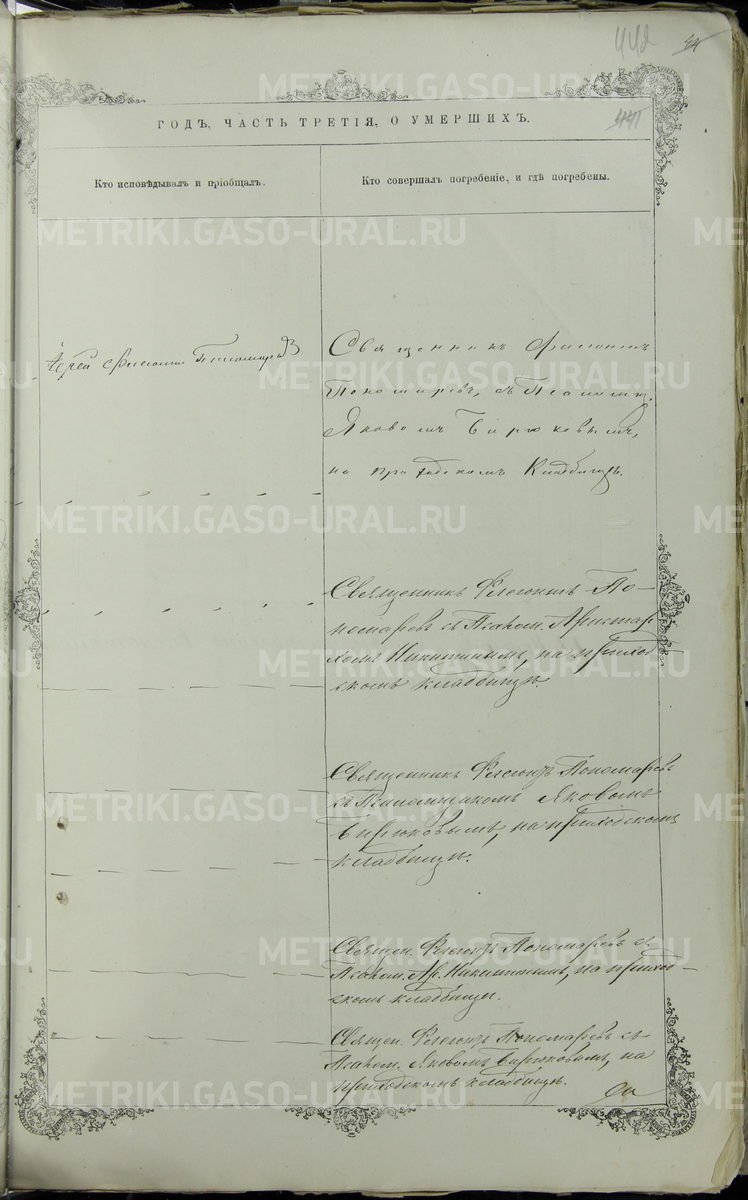 442
44
441
ГОДЪ, ЧАСТЬ ТРЕТІЯ, О УМЕРШИХЪ.
Кто исповѣдывалъ и пріобщалъ.
Кто совершалъ погребеніе, и гдѣ погребены.
METRIKI.GASO-URAL.RU
Іерей Флегонтъ Пономаревъ
Священникъ Флегонтъ
Пономаревъ, съ Псаломщ.
Яковомъ Бирюковымъ,
на приходскомъ кладбищѣ.
Священникъ Флегонтъ По-
номаревъ съ Псалом. Аристар
хомъ Никитинымъ, на приход
скомъ кладбищѣ.
Священникъ Флегонтъ Пономаревъ
съ Псаломщикомъ Яковомъ
Бирюковымъ, на приходскомъ
кладбищѣ.
Священ. Флегонтъ Пономаревъ съ
Псалом. Ар. Никитинымъ, на приход-
скомъ кладбищѣ.
Священ. Флегонтъ Пономаревъ съ
Псалом. Яковомъ Бирюковымъ, на
приходскомъ кладбищѣ.